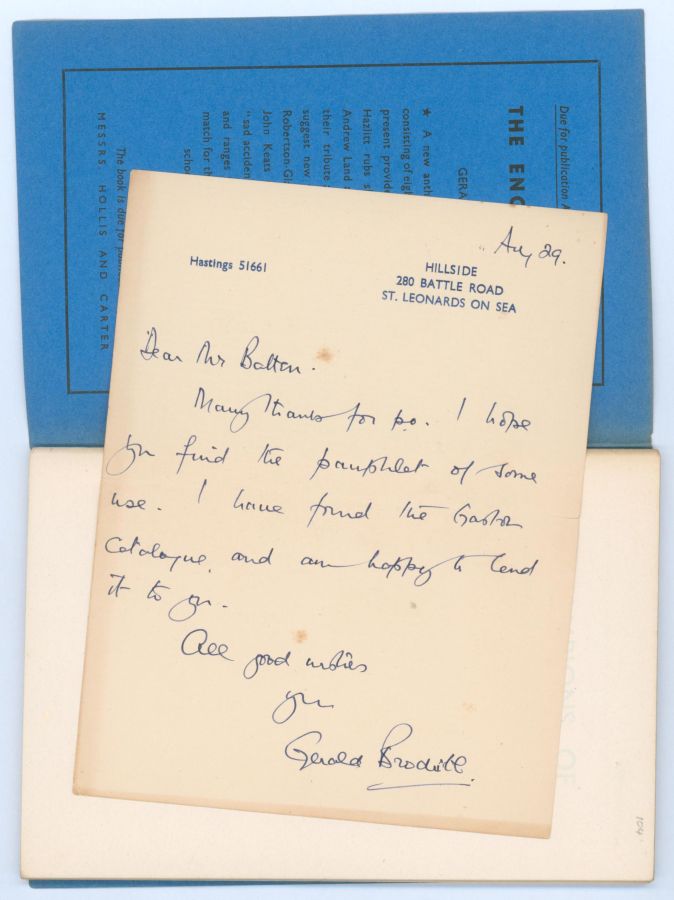 Aug 29.
Hastings 51661
HILLSIDE
280 BATTLE ROAD
ST. LEONARDS ON SEA
Dear Mr
Many thanks for p.o. I hope
you find the pamphlet of some
use. I have found the Gaston
Catalogue, and am happy to lend
it to you.
All good wishes
yrs
Gerald Brodribb.
Due for publication A
THE ENG
GERA
★ A new anth
consisting of eigh
present provide
Hazlitt rubs s
Andrew Land
their tribute
suggest new
Robertson-Gl
John Keats
"sad acciden
and ranges
match for th
scho
The book is due for publi
MESSRS. HOLLIS AND CARTER
OF
104